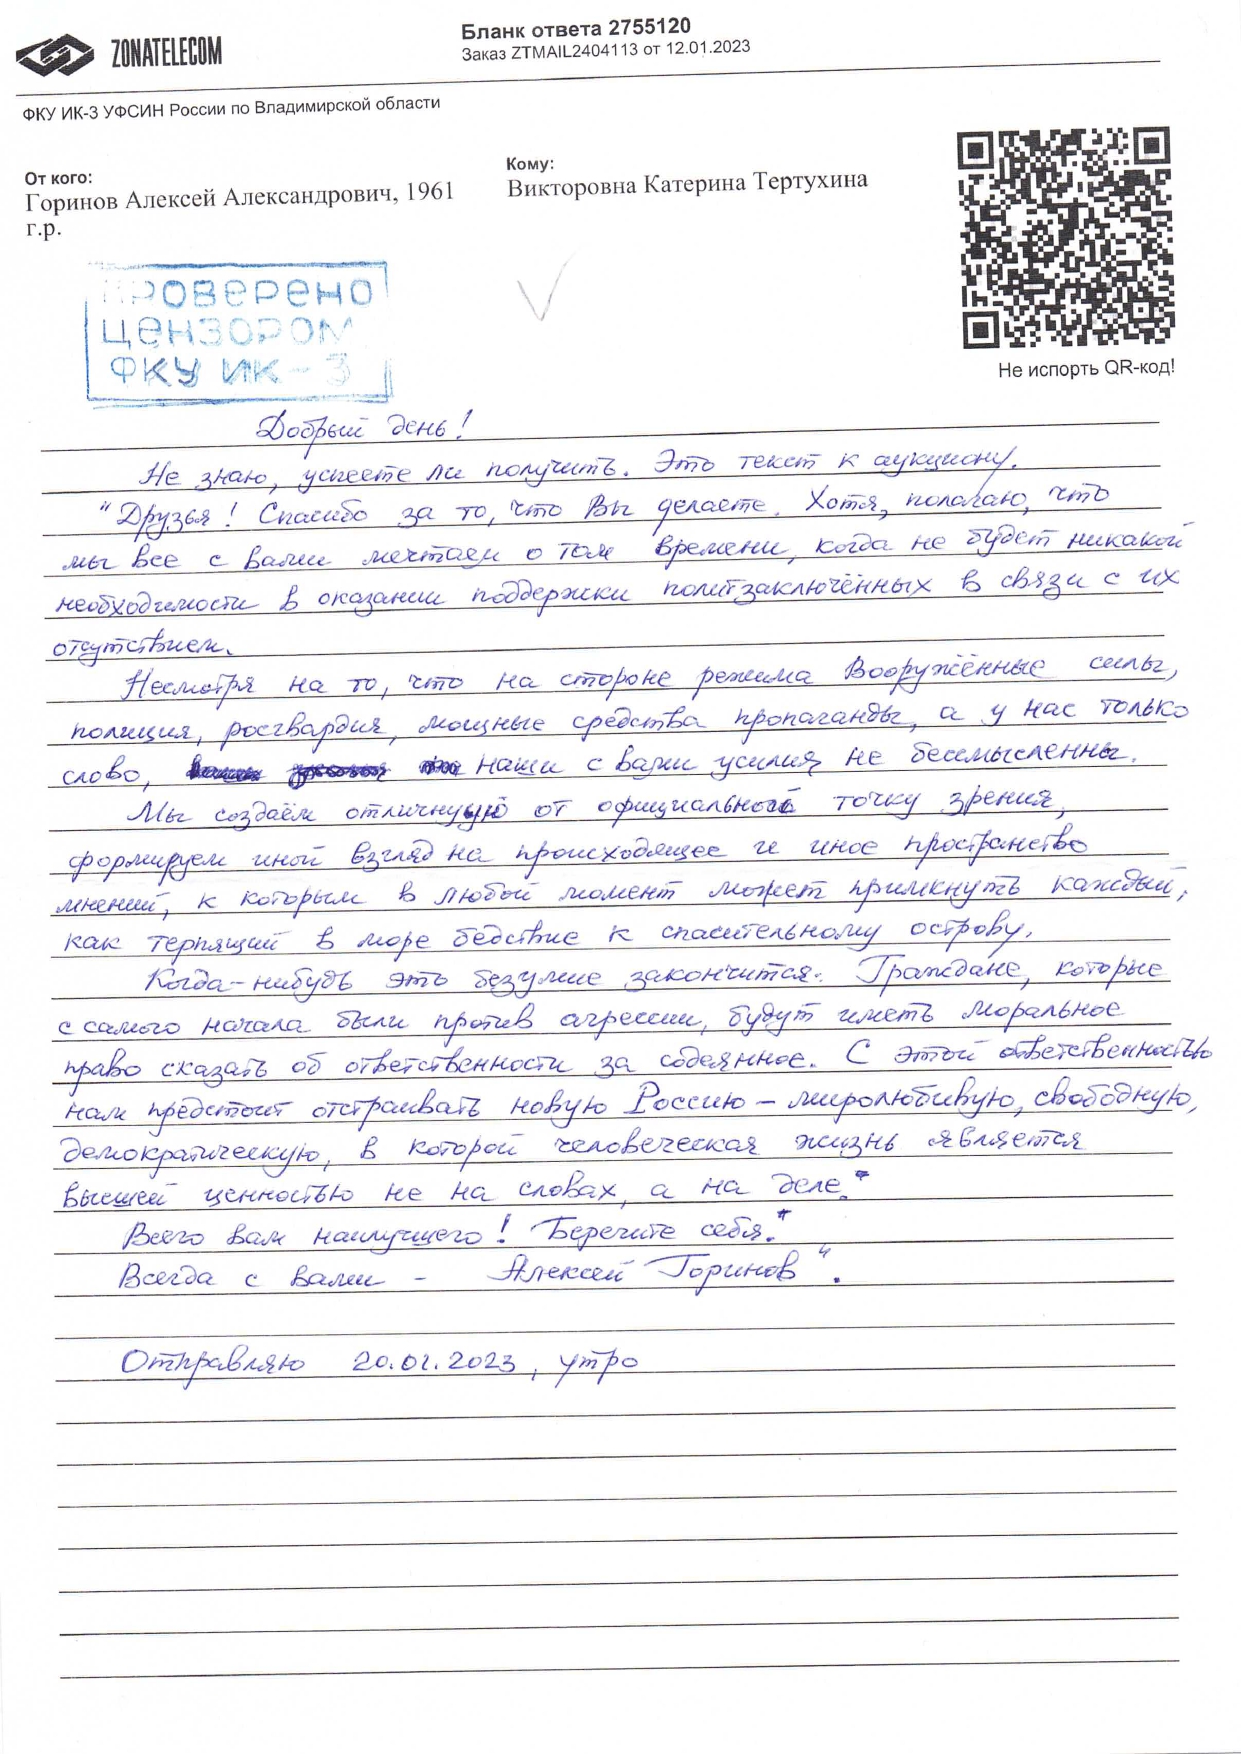 ZONATELECOM
Бланк ответа 2755120
Заказ ZTMAIL2404113 от 12.01.2023
ФКУ ИК-3 УФСИН России по Владимирской области
От кого:
Горинов Алексей Александрович, 1961
г.р.
Кому:
Викторовна Катерина Тертухина
Не испорть QR-код!
ПРОВЕРЕНО
ЦЕНЗОРОМ
ФКУ ИК-3
Добрый день!
Не знаю, успеете ли получить. Это текст к аукциону.
"Друзья! Спасибо за то, что Вы делаете. Хотя, полагаю, что
мы все с вами мечтаем о том времени, когда не будет никакой
необходимости в оказании поддержки политзаключённых в связи с их
отсутствием.
Несмотря на то, что на стороне режима Вооружённые силы,
полиция, росгвардия, мощные средства пропаганды, а у нас только
слово, наши с вами усилия не бессмысленны.
Мы создаём отличную от официальной точку зрения,
формируем иной взгляд на происходящее и иное пространство
мнений, к которым в любой момент может примкнуть каждый,
как терпящий в море бедствие к спасительному острову.
Когда-нибудь это безумие закончится. Граждане, которые
с самого начала были против агрессии, будут иметь моральное
право сказать об ответственности за содеянное. С этой ответственностью
нам предстоит отстраивать новую Россию – миролюбивую, свободную,
демократическую, в которой человеческая жизнь является
высшей ценностью не на словах, а на деле.
Всего вам наилучшего! Берегите себя!
Всегда с вами – Алексей Горинов".
Отправляю 20.01.2023, утро